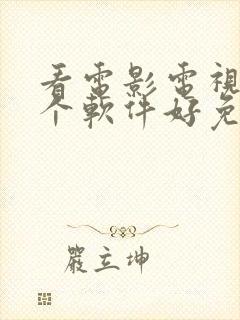 看電影電視
个軟件好免
嚴立坤